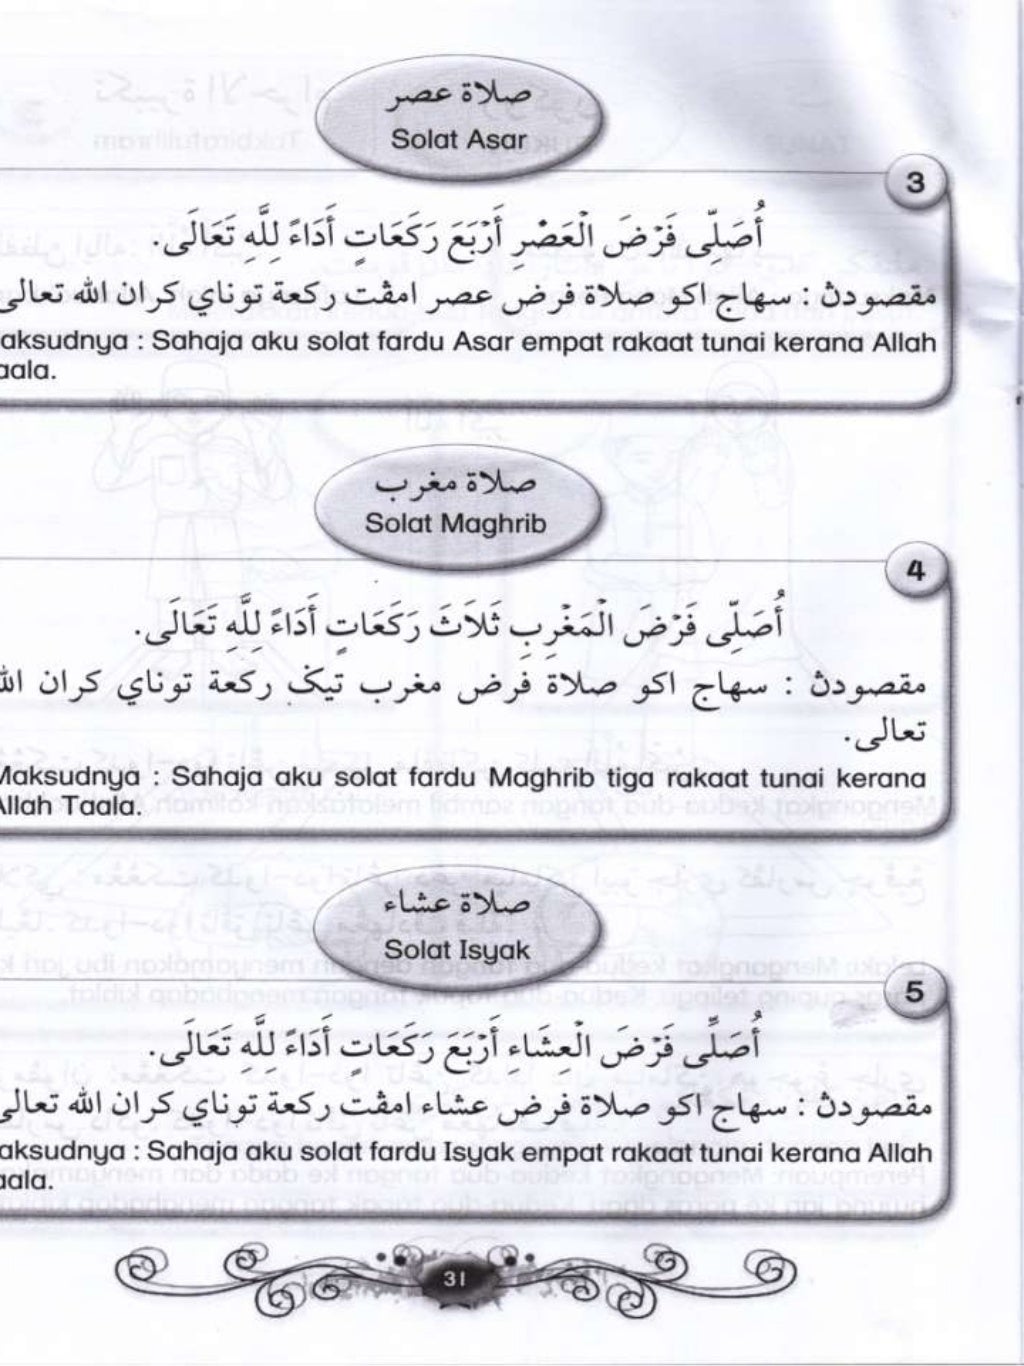 صلاة عصر
Solat Asar
3
أُصَلِّى فَرْضَ الْعَصْرِ أَرْبَعَ رَكَعَاتٍ أَدَاءً لِلَّهِ تَعَالَى.
مقصودڽ : سهاج اكو صلاة فرض عصر امڤت ركعة توناي كران الله تعالى
aksudnya : Sahaja aku solat fardu Asar empat rakaat tunai kerana Allah
aala.
صلاة مغرب
Solat Maghrib
4
أُصَلِّى فَرْضَ الْمَغْرِبِ ثَلَاثَ رَكَعَاتٍ أَدَاءً لِلَّهِ تَعَالَى.
مقصودڽ : سهاج اكو صلاة فرض مغرب تيݢ ركعة توناي كران الله
تعالى.
Maksudnya : Sahaja aku solat fardu Maghrib tiga rakaat tunai kerana
Allah Taala.
صلاة عشاء
Solat Isyak
5
أُصَلِّى فَرْضَ الْعِشَاءِ أَرْبَعَ رَكَعَاتٍ أَدَاءً لِلَّهِ تَعَالَى.
مقصودڽ : سهاج اكو صلاة فرض عشاء امڤت ركعة توناي كران الله تعالى
aksudnya : Sahaja aku solat fardu Isyak empat rakaat tunai kerana Allah
aala.
31